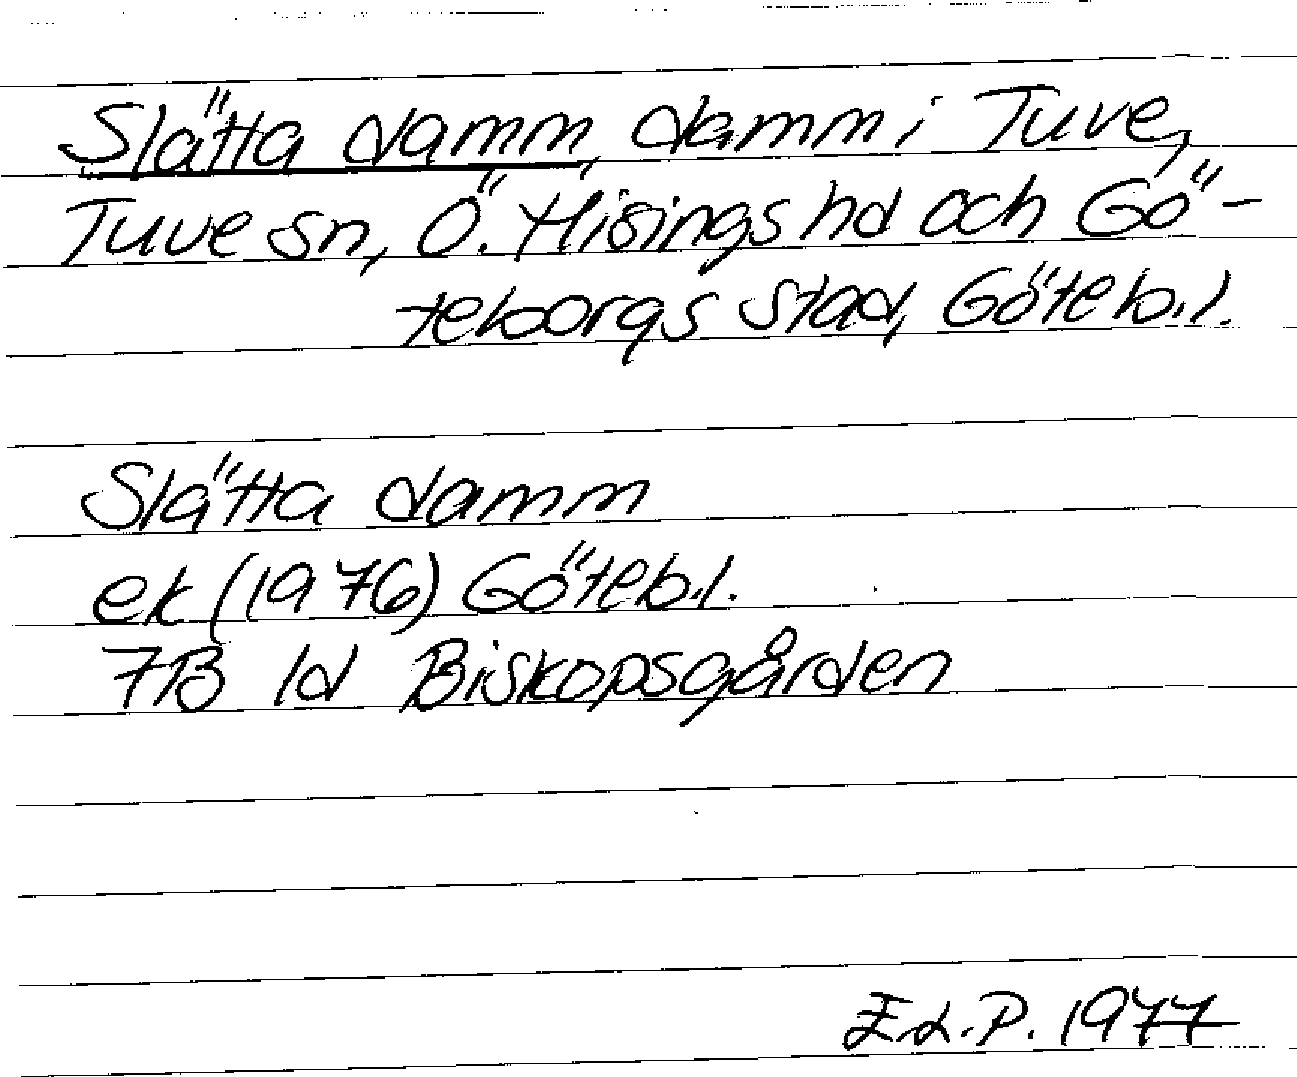 Slätta damm, damm i Tuve,
Tuve sn, Ö. Hisings hd och Gö-
teborgs stad, Göteb.l.
Slätta damm
ek (1976) Göteb.l.
7B 1d Biskopsgården
E.L.P. 1977